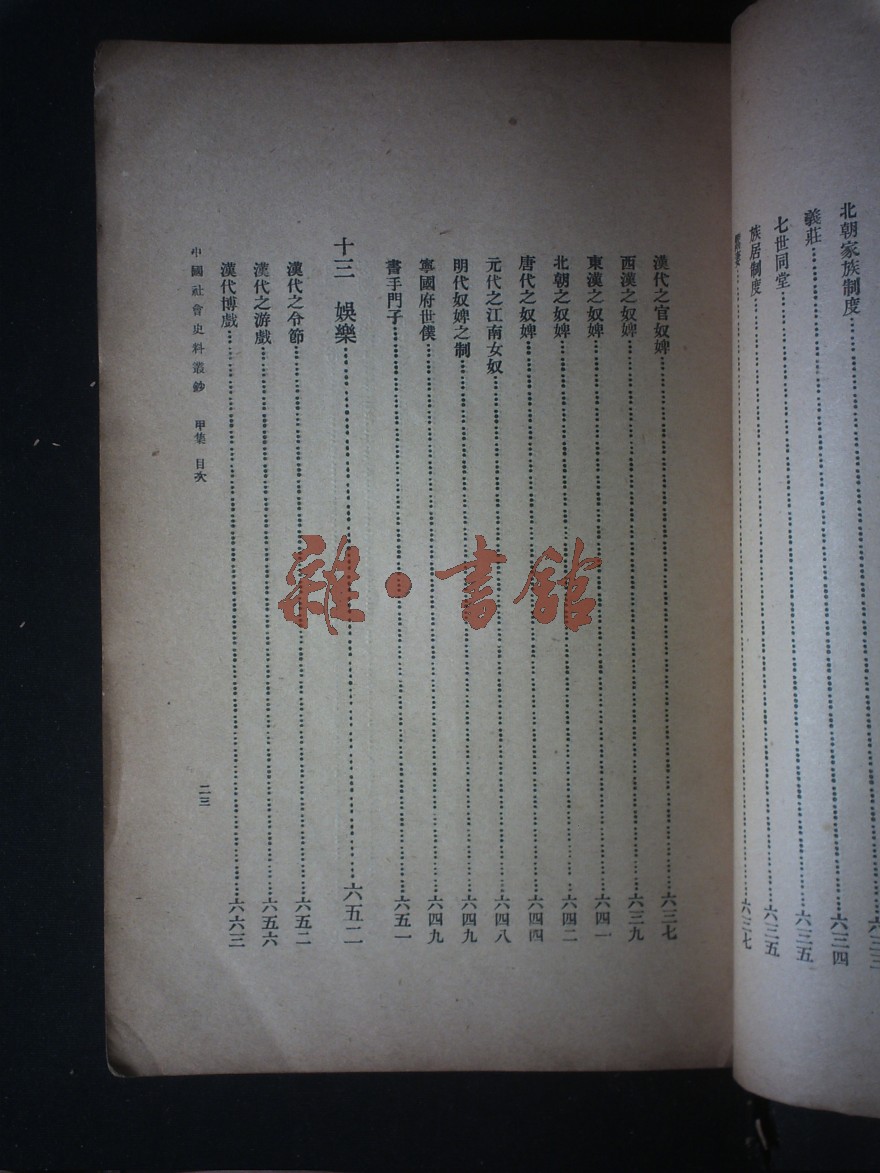 北朝家族制度……六三四
義莊……六三五
七世同堂……六三五
族居制度……六三七
漢代之官奴婢……六三七
西漢之奴婢……六三九
東漢之奴婢……六四一
北朝之奴婢……六四二
唐代之奴婢……六四四
元代之江南女奴……六四八
明代奴婢之制……六四九
寧國府世僕……六四九
書手門子……六五一
十三 娛樂……六五二
漢代之令節……六五二
漢代之游戲……六五六
漢代博戲……六六三
中國社會史料叢鈔 甲集 目次
二三
雜·書館